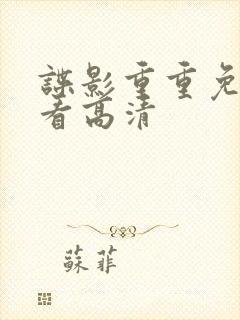 諜影重重免
看高清
蘇菲